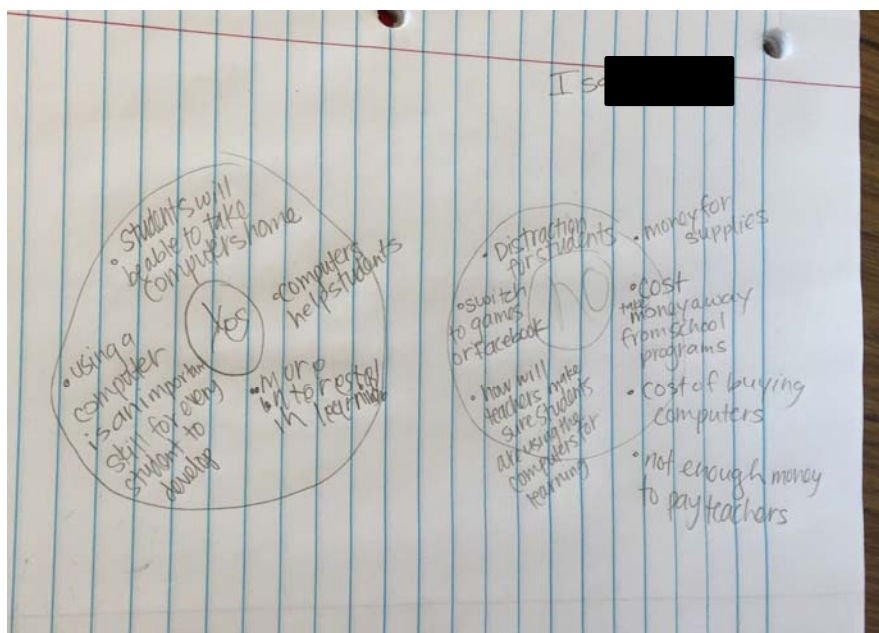 I sa
• Students will
be able to take
computers home
Yes
• computers
help students
• using a
computer
is an important
skill for every
student to
develop
• More
interested
in learning
no
• Distraction
for students
• switch
to games
or Facebook
• how will
teachers make
sure students
are using the
computers for
learning
• money for
supplies
• cost
take
money away
from school
programs
• cost of buying
computers
• not enough money
to pay teachers